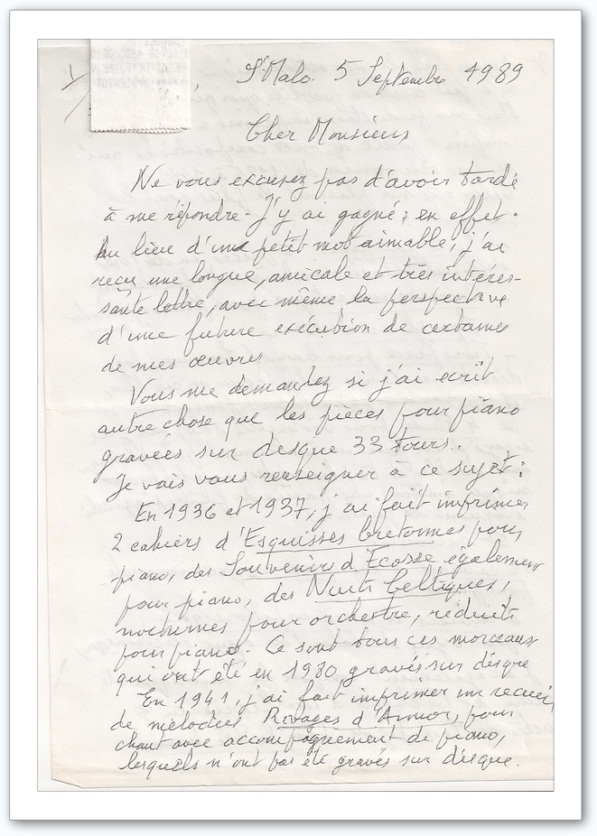 1/
St Malo. 5 Septembre 1989
Cher Monsieur
Ne vous excusez pas d'avoir tardé
à me répondre - J'y ai gagné ; en effet.
Au lieu d'une petit mot aimable, j'ai
reçu une longue, amicale et très intéres-
sante lettre, avec même la perspective
d'une future exécution de certaines
de mes œuvres
Vous me demandez si j'ai ecrit
autre chose que les pièces pour piano
gravées sur desque 33 tours..
Je vais vous renseigner à ce sujet :
En 1936 et 1937, j'ai fait imprimer
2 cahiers d'Esquisses bretonnes pour
piano, des Souvenirs d'Ecosse également
pour piano, des Nuits Celtiques,
nocturnes pour orchestre, réduits
pour piano. Ce sont tous ces morceaux
qui ont été en 1980 gravés sur disque
En 1941, j'ai fait imprimer un recueil
de mélodies Rivages d'Armor, pour
chant avec accompagnement de piano,
lesquels n'ont pas été gravés sur disque.